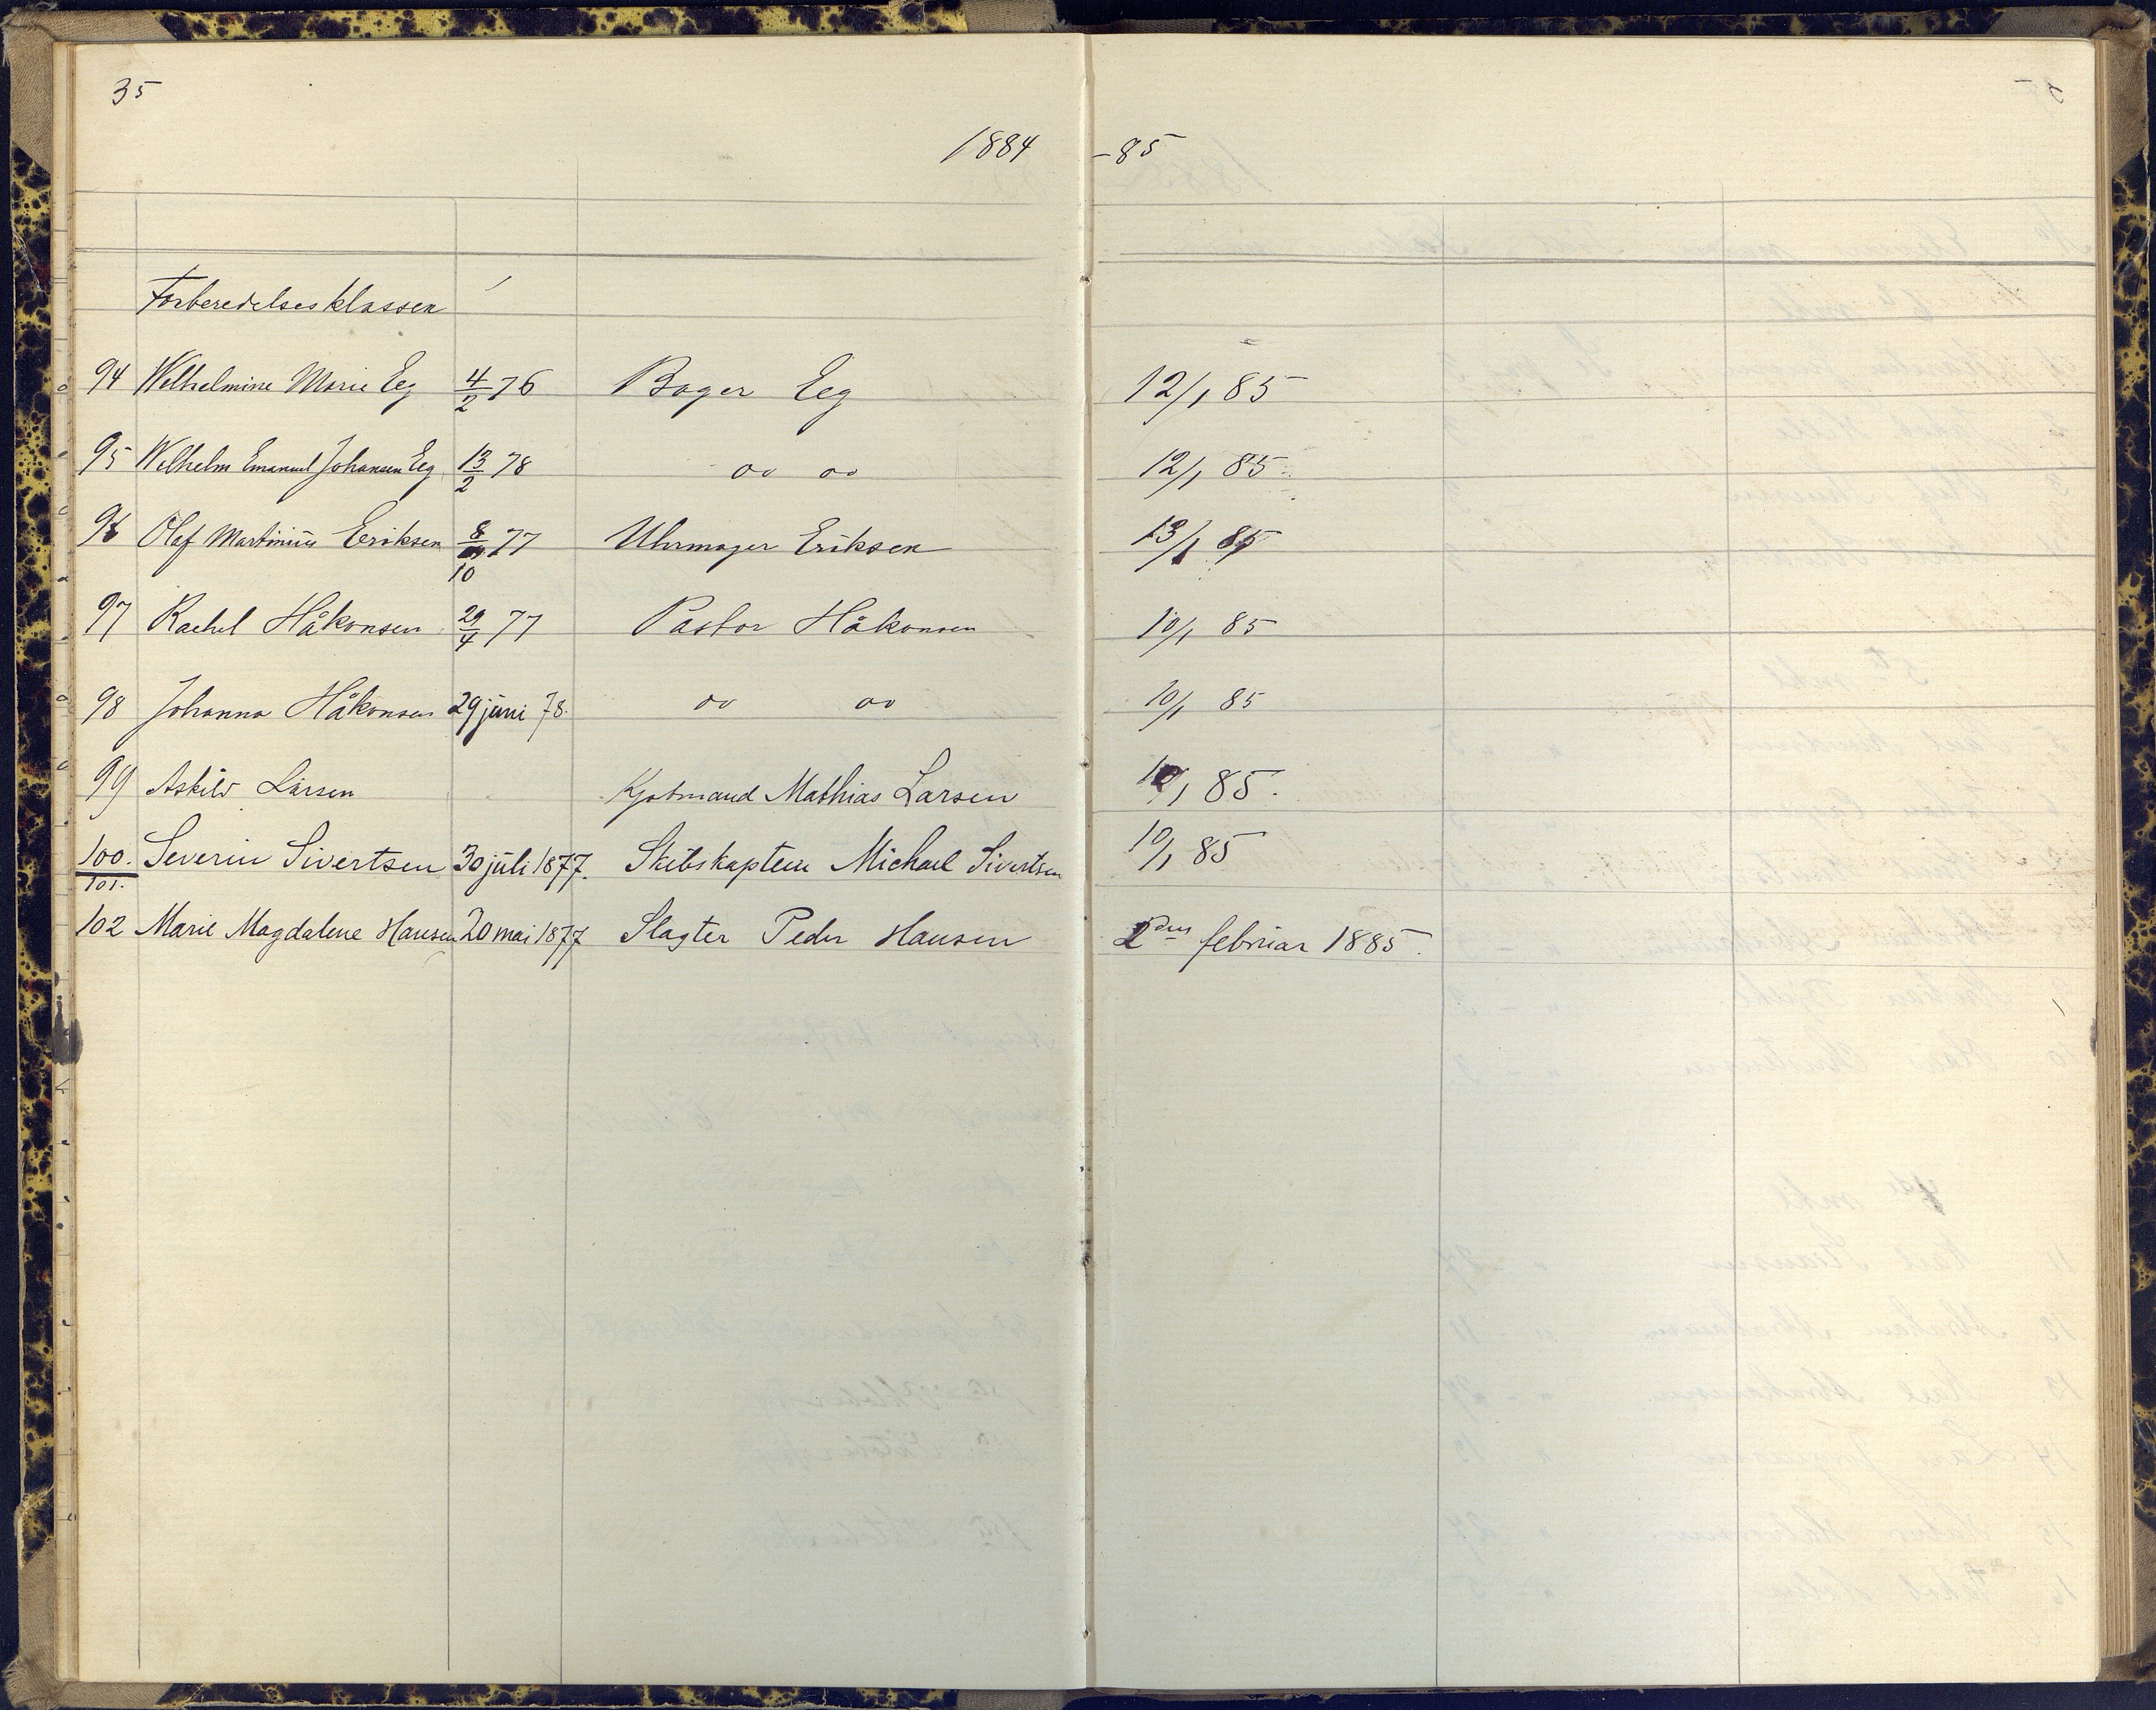 35
1884 -85
Forberedelsesklassen
94 Wilhelmine Marie Eeg 4/2 76 Bager Eeg 12/1 85
95 Wilhelm Emanuel Johansen Eeg 13/2 78 do do 12/1 85
96 Olaf Martinius Eriksen 8/10 77 Uhrmager Eriksen 13/1 85
97 Rachel Håkonsen 29/4 77 Pastor Håkonsen 10/1 85
98 Johanna Håkonsen 29 juni 78. do do 10/1 85
99 Askild Larsen Kjøbmand Mathias Larsen 85.
100. Severin Sivertsen 30 juli 1877. Skibskaptein Michael Sivertsen 10/1 85
101.
102 Marie Magdalene Hansen 20 mai 1877 Slagter Peder Hansen 2den februar 1885.